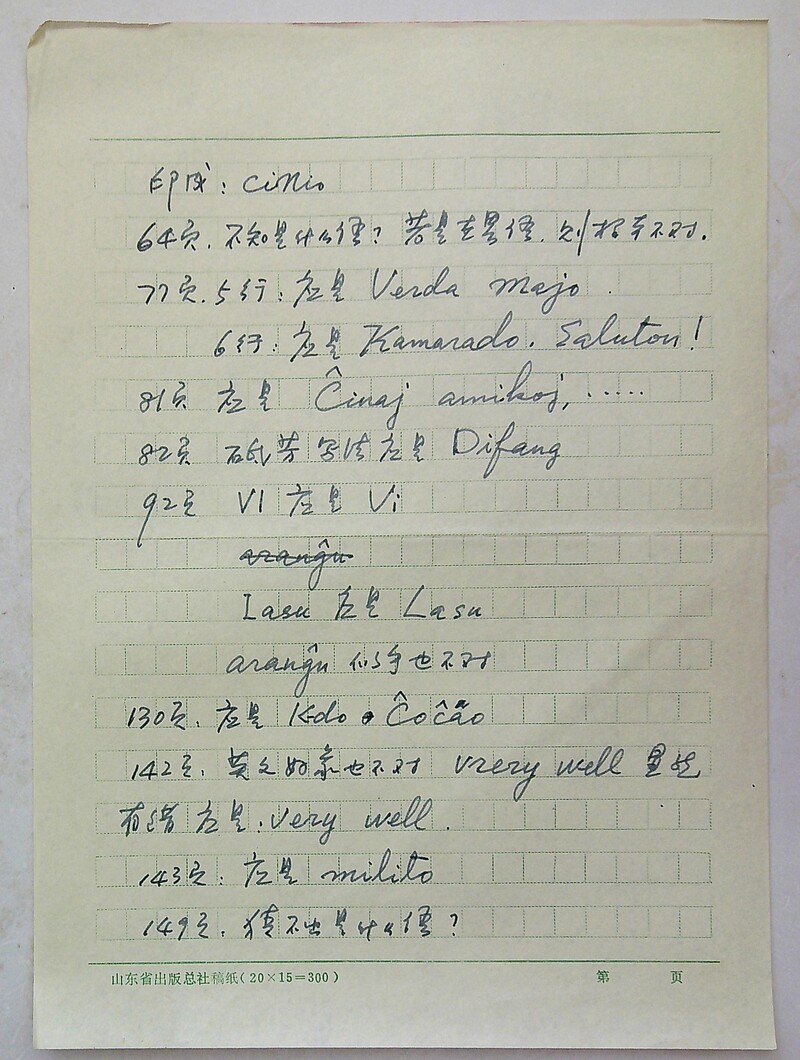 印成: cinio
64页. 不知是什么语? 若是世界语. 则根本不对.
77页. 5行: 应是 Verda majo.
6行: 应是 Kamarado. Saluton!
81页 应是 Ĉinaj amikoj, ·····
82页 砥芳写法应是 Difang
92页 VI 应是 Vi
aranĝu
Iasu 应是 Lasu
aranĝu 似乎也不对
130页. 应是 Kdo Ĉoĉao
142页. 英文好象也不对 vrery well 显然
有错 应是: very well.
143页: 应是 milito
149页. 猜不出是什么语?
山东省出版总社稿纸(20×15=300) 第 页